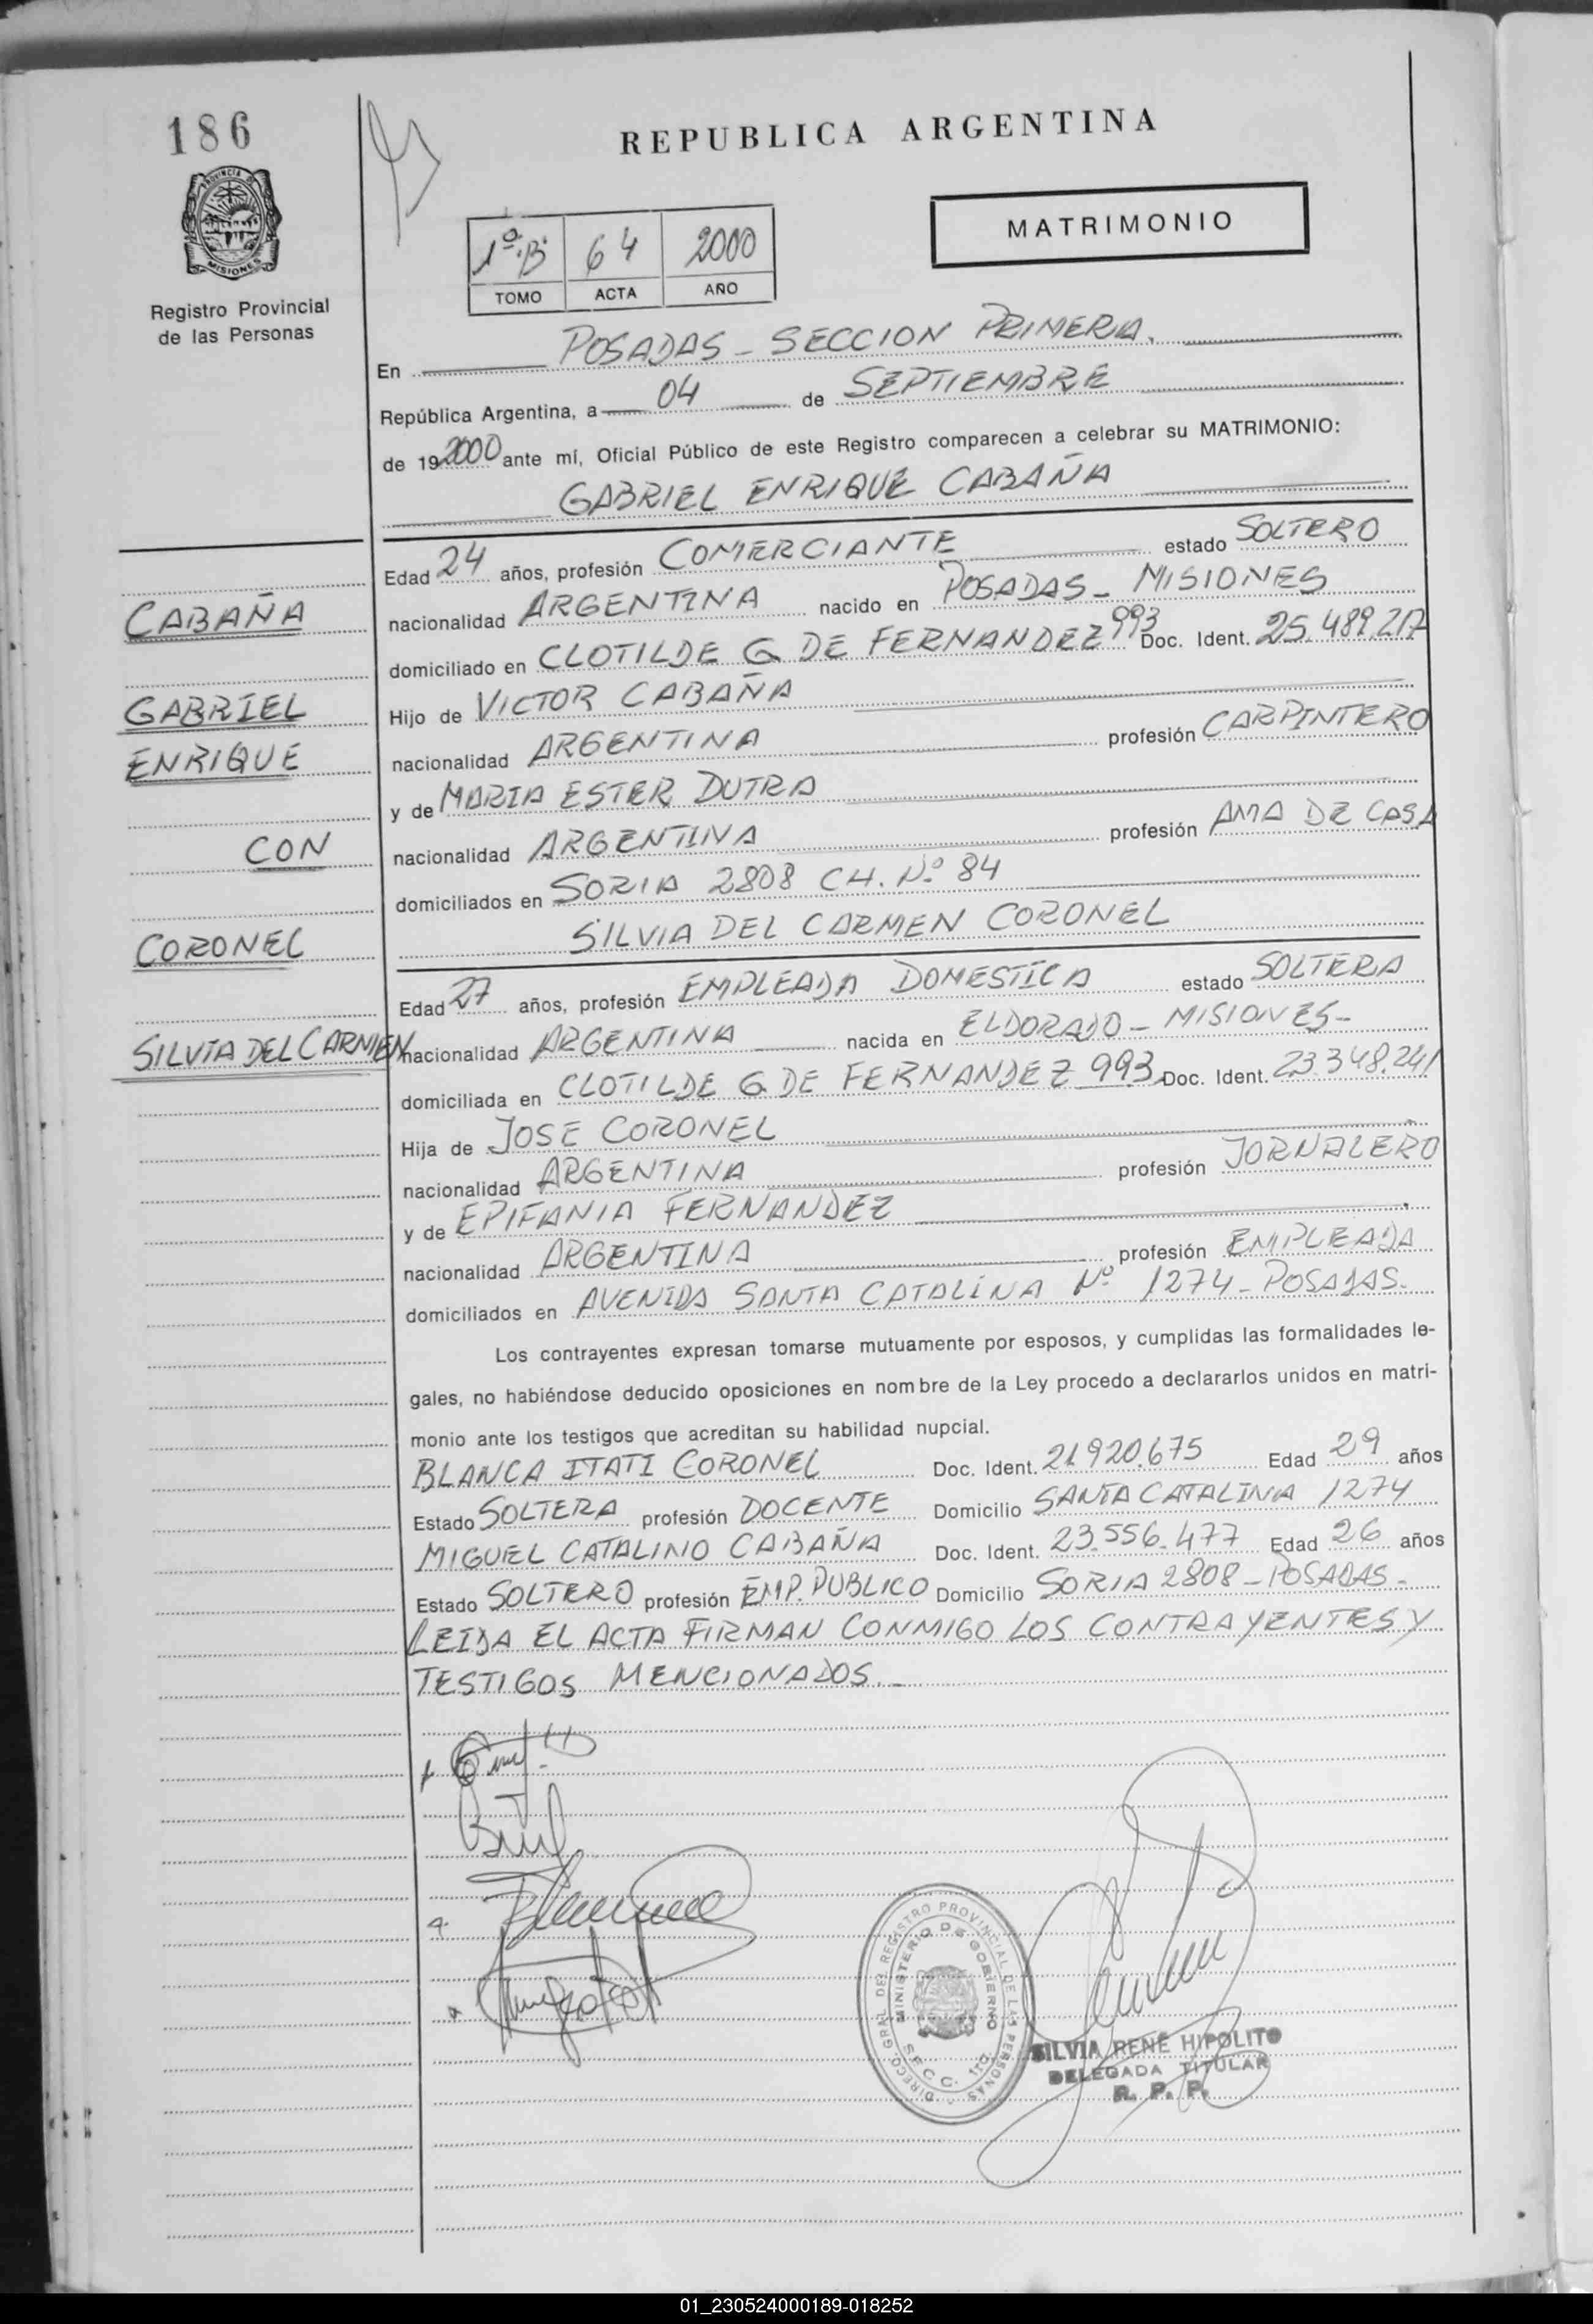 186
REPUBLICA ARGENTINA
PROVINCIA DE
MISIONES
Registro Provincial
de las Personas
1º.B. 64 2000
TOMO ACTA AÑO
MATRIMONIO
En POSADAS - SECCION PRIMERA.
República Argentina, a 04 de SEPTIEMBRE
de 192000 ante mí, Oficial Público de este Registro comparecen a celebrar su MATRIMONIO:
GABRIEL ENRIQUE CABAÑA
Edad 24 años, profesión COMERCIANTE estado SOLTERO
CABAÑA
nacionalidad ARGENTINA nacido en POSADAS - MISIONES
domiciliado en CLOTILDE G DE FERNANDEZ 993 Doc. Ident. 25.489.217
GABRIEL
Hijo de VICTOR CABAÑA
ENRIQUE
nacionalidad ARGENTINA profesión CARPINTERO
y de MARIA ESTER DUTRA
CON
nacionalidad ARGENTINA profesión AMA DE CASA
domiciliados en SORIA 2808 CH. Nº 84
CORONEL
SILVIA DEL CARMEN CORONEL
Edad 27 años, profesión EMPLEADA DOMESTICA estado SOLTERA
SILVIA DEL CARMEN
nacionalidad ARGENTINA nacida en ELDORADO - MISIONES-
domiciliada en CLOTILDE G DE FERNANDEZ 993 Doc. Ident. 23.348.241
Hija de JOSE CORONEL
nacionalidad ARGENTINA profesión JORNALERO
y de EPIFANIA FERNANDEZ
nacionalidad ARGENTINA profesión EMPLEADA
domiciliados en AVENIDA SANTA CATALINA Nº 1274 - POSADAS-
Los contrayentes expresan tomarse mutuamente por esposos, y cumplidas las formalidades le-
gales, no habiéndose deducido oposiciones en nombre de la Ley procedo a declararlos unidos en matri-
monio ante los testigos que acreditan su habilidad nupcial.
BLANCA ITATI CORONEL Doc. Ident. 21.920.675 Edad 29 años
Estado SOLTERA profesión DOCENTE Domicilio SANTA CATALINA 1274
MIGUEL CATALINO CABAÑA Doc. Ident. 23.556.477 Edad 26 años
Estado SOLTERO profesión EMP. PUBLICO Domicilio SORIA 2808 - POSADAS -
LEIDA EL ACTA FIRMAN CONMIGO LOS CONTRAYENTES Y
TESTIGOS MENCIONADOS.-
DIRECC. GRAL. DEL REGISTRO PROVINCIAL DE LAS PERSONAS
MINISTERIO DE GOBIERNO
SECC. 1ra.
SILVIA RENE HIPOLITO
DELEGADA TITULAR
R. P. P.
01_230524000189-018252